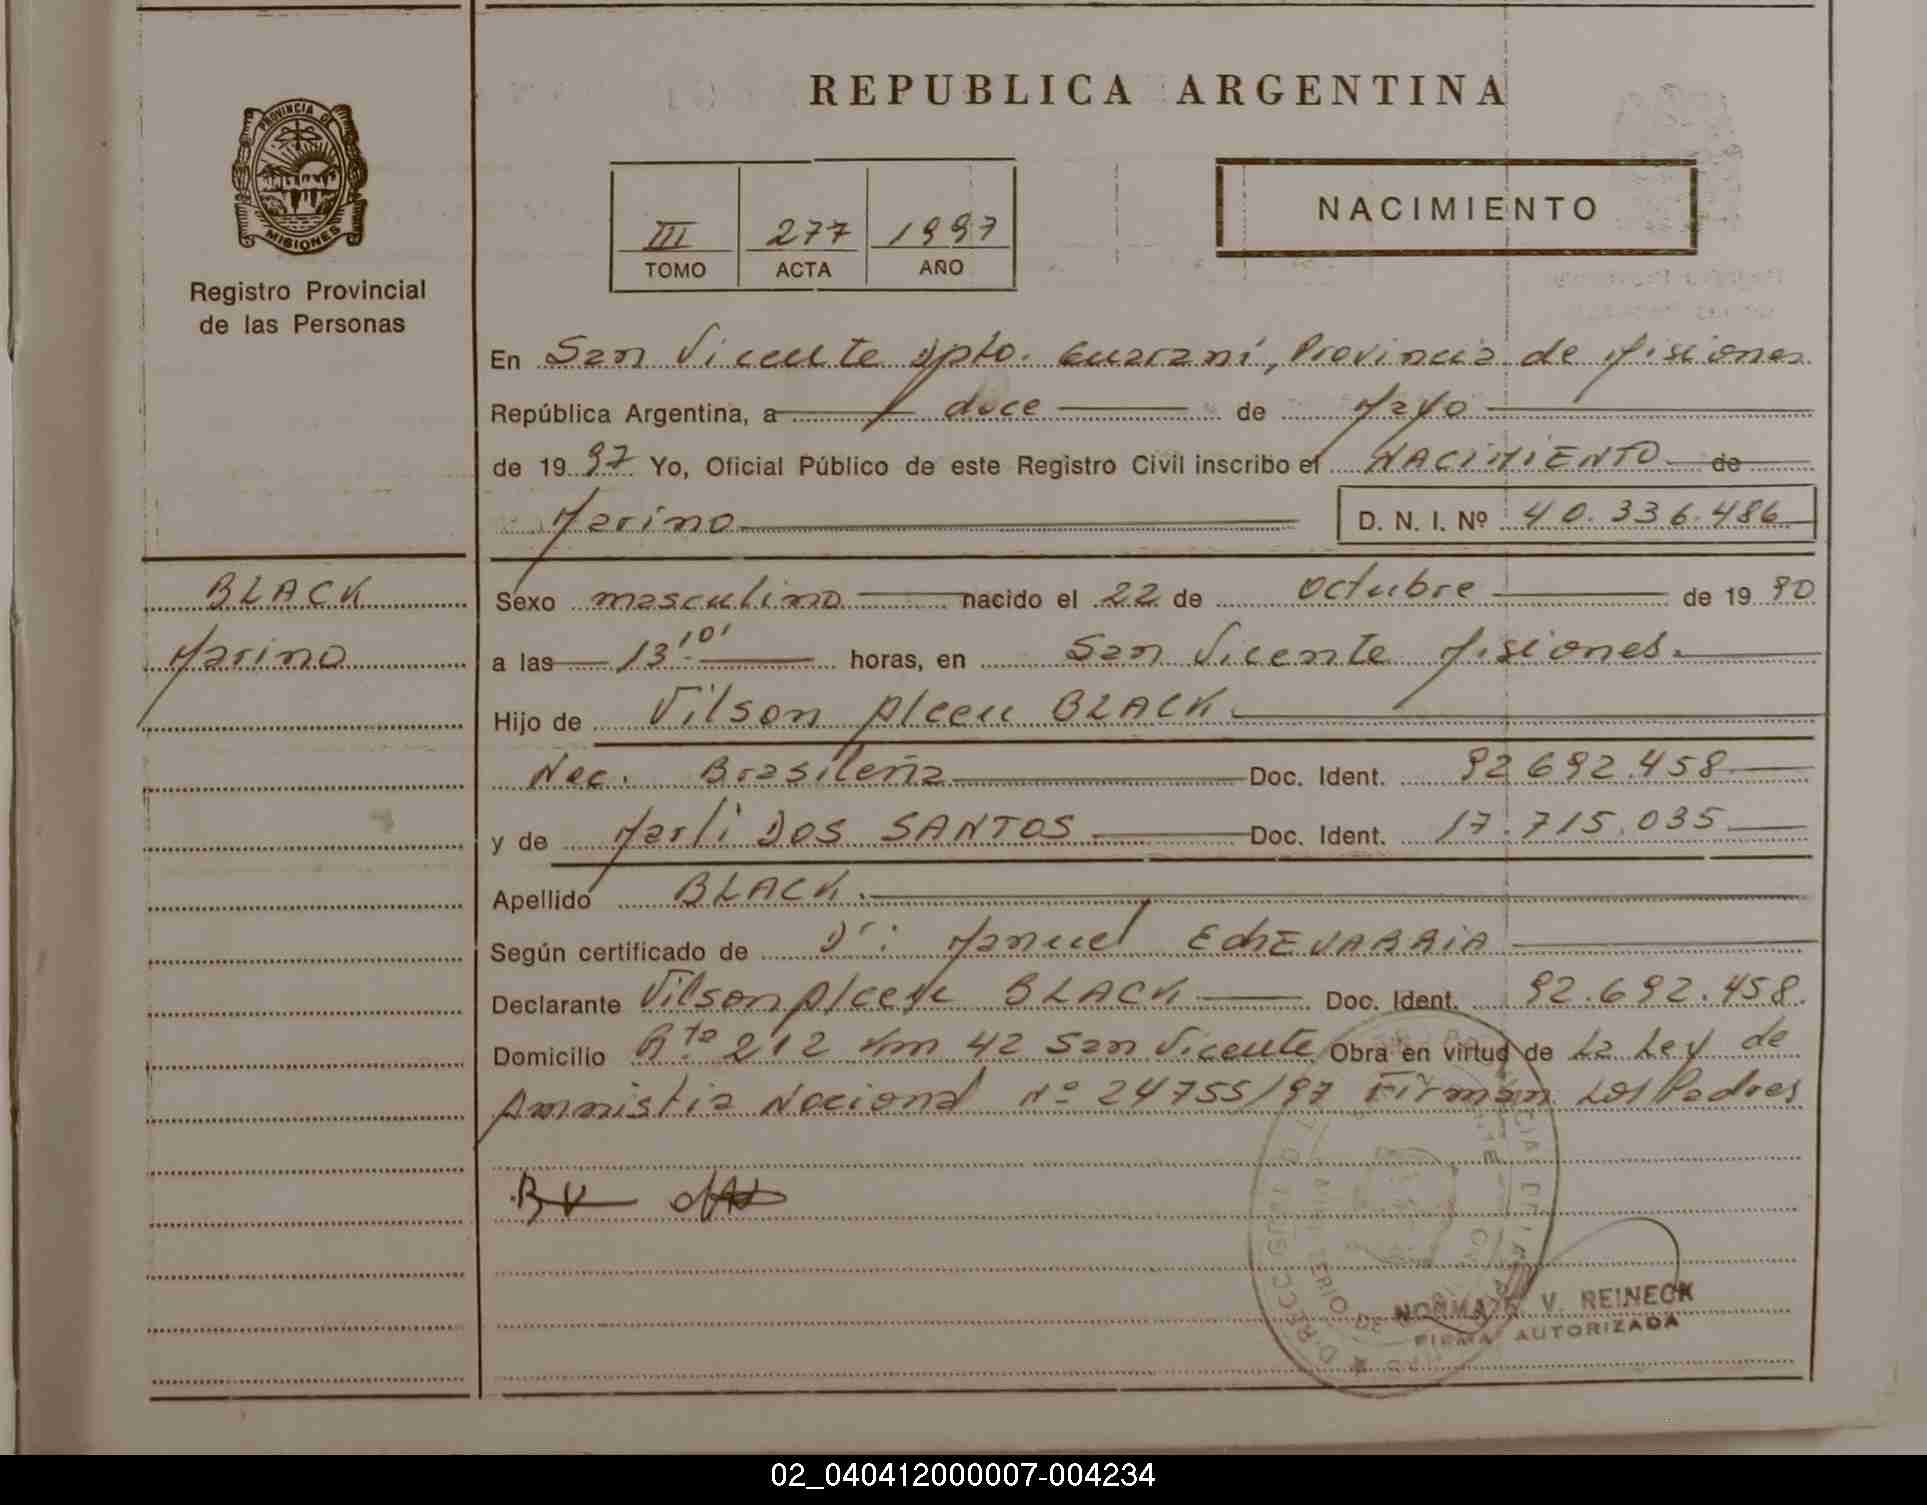 REPUBLICA ARGENTINA
PROVINCIA DE
MISIONES
Registro Provincial
de las Personas
III 277 1997
TOMO ACTA AÑO
NACIMIENTO
En San Vicente Dpto. Guaraní, Provincia de Misiones
República Argentina, a doce de Mayo
de 1997 Yo, Oficial Público de este Registro Civil inscribo el NACIMIENTO de
Marino D. N. I. Nº 40.336.486
BLACK
Marino
Sexo masculino nacido el 22 de Octubre de 1990
a las 13'10' horas, en San Vicente Misiones.
Hijo de Vilson Alceu BLACK
Nac. Brasileña Doc. Ident. 92692.458
y de Marli DOS SANTOS Doc. Ident. 17.715.035
Apellido BLACK.
Según certificado de Dr: Manuel EchEVARRIA
Declarante Vilson Alceu BLACK Doc. Ident. 92.692.458.
Domicilio Rta 212 Km 42 San Vicente Obra en virtud de La Ley de
Amnistia Nacional Nº 24755/97 Firman Los Padres
NORMA V. REINECK
FIRMA AUTORIZADA
02_040412000007-004234